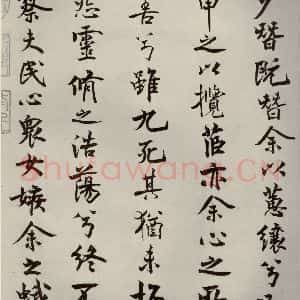 夕替既替余以蕙纕兮
申之以攬茝亦余心之所
善兮雖九死其猶未悔
怨靈脩之浩蕩兮終不
察夫民心衆女嫉余之蛾
Shufawang.CN